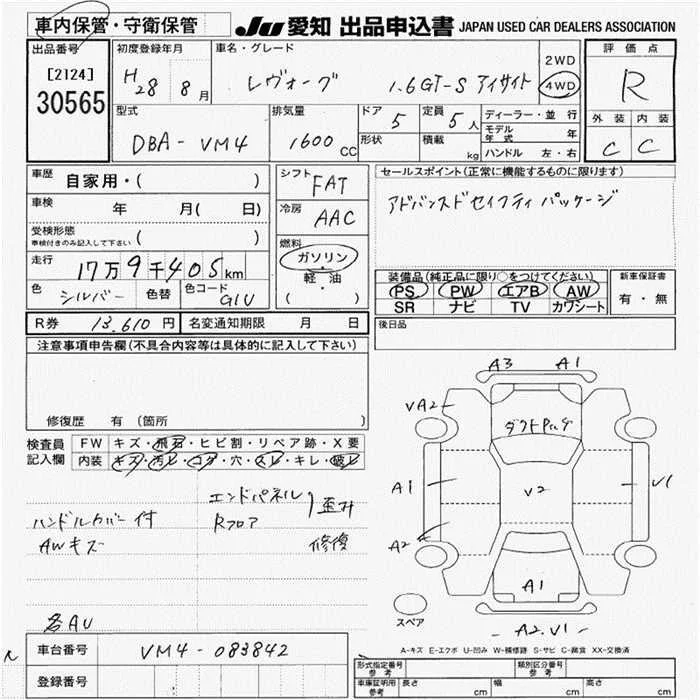 車内保管・守衛保管
JU 愛知 出品申込書 JAPAN USED CAR DEALERS ASSOCIATION
出品番号
[2124]
30565
初度登録年月
H28 8月
車名・グレード
レヴォーグ 1.6GT-S アイサイト
2WD
4WD
評価点
R
外装 内装
C C
型式
DBA-VM4
排気量
1600 CC
ドア 5
形状
定員 5人
積載 kg
ディーラー・並行
モデル年式 年
ハンドル 左・右
車歴 自家用・( )
車検 年 月( 日)
受検形態
車検付きのみ記入して下さい ( )
走行 17万9千405km
色 シルバー 色替 色コード G1U
シフト FAT
冷房 AAC
燃料
ガソリン
・
軽・油
( )
セールスポイント(正常に機能するものに限ります)
アドバンスドセイフティパッケージ
装備品(純正品に限り○をつけてください)
PS PW エアB AW
SR ナビ TV カワシート
新車保証書
有・無
後日品
R券 13,610円 名変通知期限 月 日
注意事項申告欄(不具合内容等は具体的に記入して下さい)
修復歴 有(箇所 )
検査員記入欄
FW キズ・飛石・ヒビ割・リペア跡・X要
内装 キズ・汚レ・コゲ・穴・スレ・キレ・破レ
エンドパネル
Rフロア
歪み
修復
ハンドルカバー付
AWキズ
各AU
車台番号 VM4-083842
登録番号
A3 A1
VA2
A1
A2
V2
V1
A1
A2.V1
スペア
A-キズ E-エクボ U-凹み W-補修跡 S-サビ C-腐食 XX-交換済
形式指定番号 参考
類別区分番号 参考
車庫証明用 参考 長さ cm 幅 cm 高さ cm